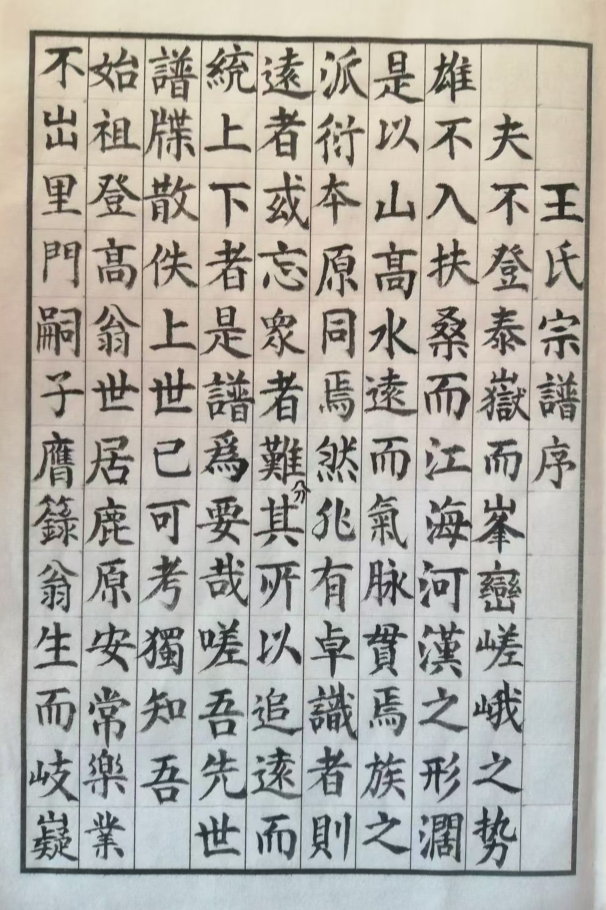 王氏宗譜序
夫不登泰嶽而峯巒嵯峨之势
雄不入扶桑而江海河漢之形濶
是以山高水遠而氣脉貫焉族之
派衍本原同焉然非有卓識者則
遠者或忘衆者難分其所以追遠而
統上下者是譜爲要哉嗟吾先世
譜牒散佚上世已可考獨知吾
始祖登高翁世居鹿原安常樂業
不出里門嗣子膺籙翁生而岐嶷